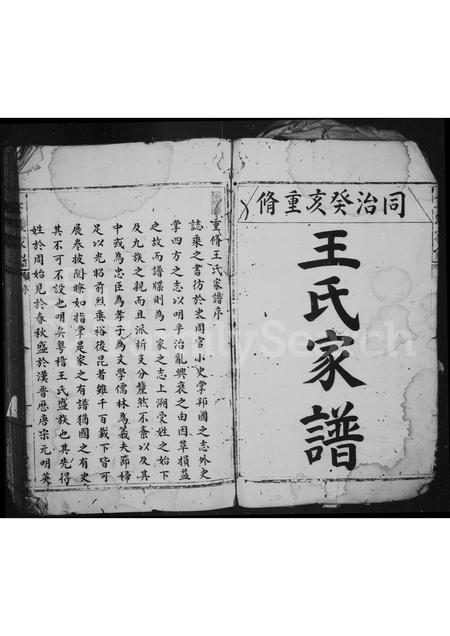 同治癸亥重脩
王氏家譜
重脩王氏家譜序
誌乘之書彷於史周官小史掌邦國之志外史
掌四方之志以明乎治亂興衰之由因革損益
之故而譜牒則為一家之志上溯受姓之始下
及九族之親而且派析支分釐然不紊以及其
中或為忠臣為孝子為文學儒林為義夫節婦
足以光昭前烈垂裕後昆者雖千百載下皆可
展卷披閱瞭如指掌是家之有譜猶國之有史
其不可不設也明矣粵稽王氏盛族也其先得
姓於周始見於春秋盛於漢晋歷唐宗元明英
FamilySearch